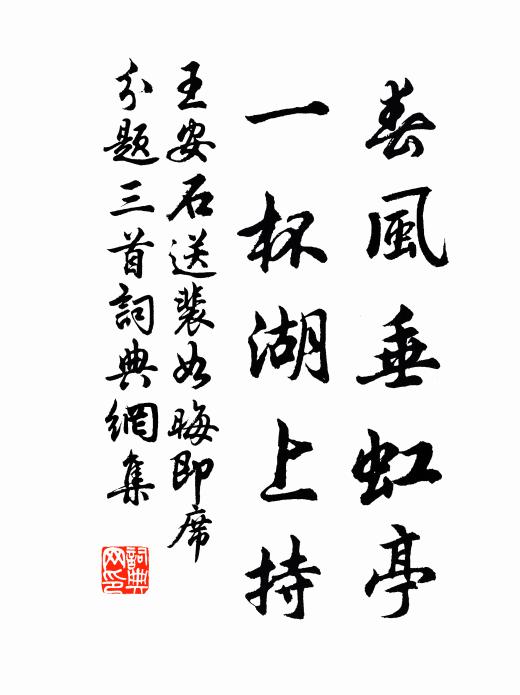 春風垂虹亭
一杯湖上持
王安石送裴如晦即席
分題三首詞典網集
詞典網印